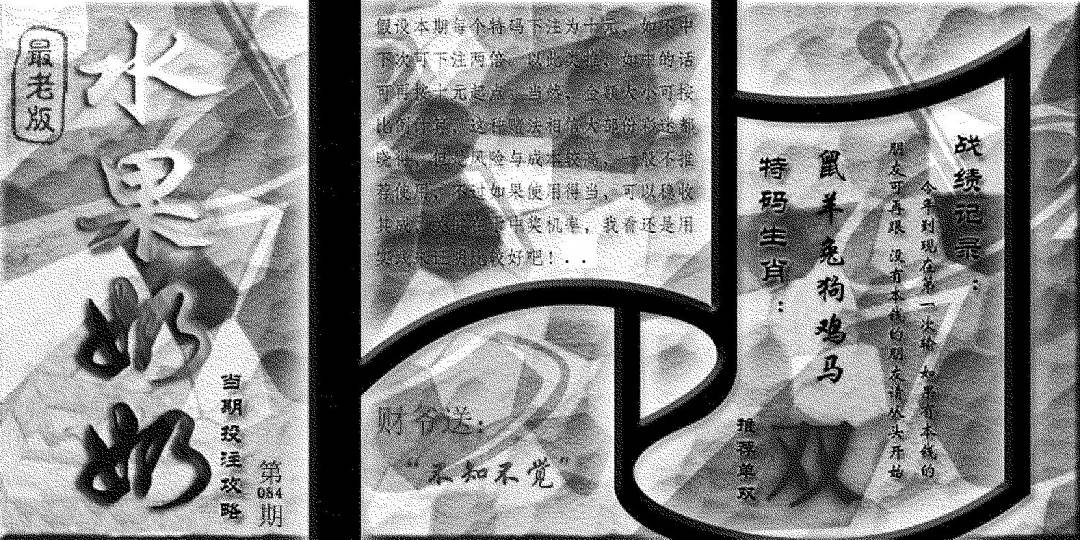 最老版
水果奶奶
当期投注攻略
第084期
假设本期每个特码下注为十元，如不中
下次可下注两倍，以此类推，如中的话
可再按十元起点，当然，金额大小可按
比例计算，这种赌法相信大部份彩迷都
晓得，但是风险与成本较高，一般不推
荐使用，不过如果使用得当，可以稳收
其成，中奖机率，我看还是用
比较好吧！..
财爷送：
“不知不觉”
战绩记录：
今年到现在第一次输 如果有本钱的
朋友可再跟 没有本钱的朋友请从头开始
鼠羊兔狗鸡马
特码生肖：
推荐单双
双